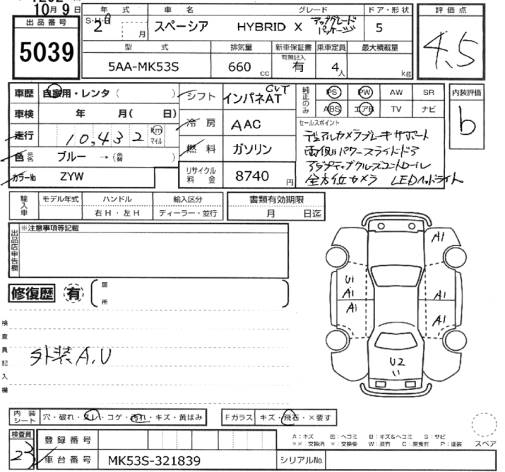 10月9日
出品番号
5039
年式
2
月
車名
スペーシア
グレード
HYBRID X アップグレードパッケージ
ドア・形状
5
評価点
4.5
型式
5AA-MK53S
排気量
660 cc
新車保証書
有
乗車定員
4人
最大積載量
kg
車歴
自家用・レンタ( )
車検
年 月( 日)
走行
10,432 km マイル
色
ブルー →
カラーNo
ZYW
シフト
インパネAT CVT
冷房
AAC
燃料
ガソリン
リサイクル料金
8740 円
純正のみ
PS PW AW SR
ABS エアB TV ナビ
セールスポイント
デュアルカメラブレーキサポート
両側パワースライドドア
アダプティブクルーズコントロール
全方位カメラ LEDヘッドライト
内装評価
b
輸入車
モデル年式
ハンドル
右H・左H
輸入区分
ディーラー・並行
書類有効期限
月 日迄
出品店申告欄
※注意事項等記載
修復歴
有
箇所
検査員記入欄
外装A,U
A1
A1
U1
A1
A1
A1
U2
い
内装シート
穴・破れ・スレ・コゲ・汚れ・キズ・黄ばみ
Fガラス
キズ・飛石・×要す
検査員
23
登録番号
車台番号
MK53S-321839
シリアルNo
A：キズ U：ヘコミ B：キズ&ヘコミ S：サビ
スペア